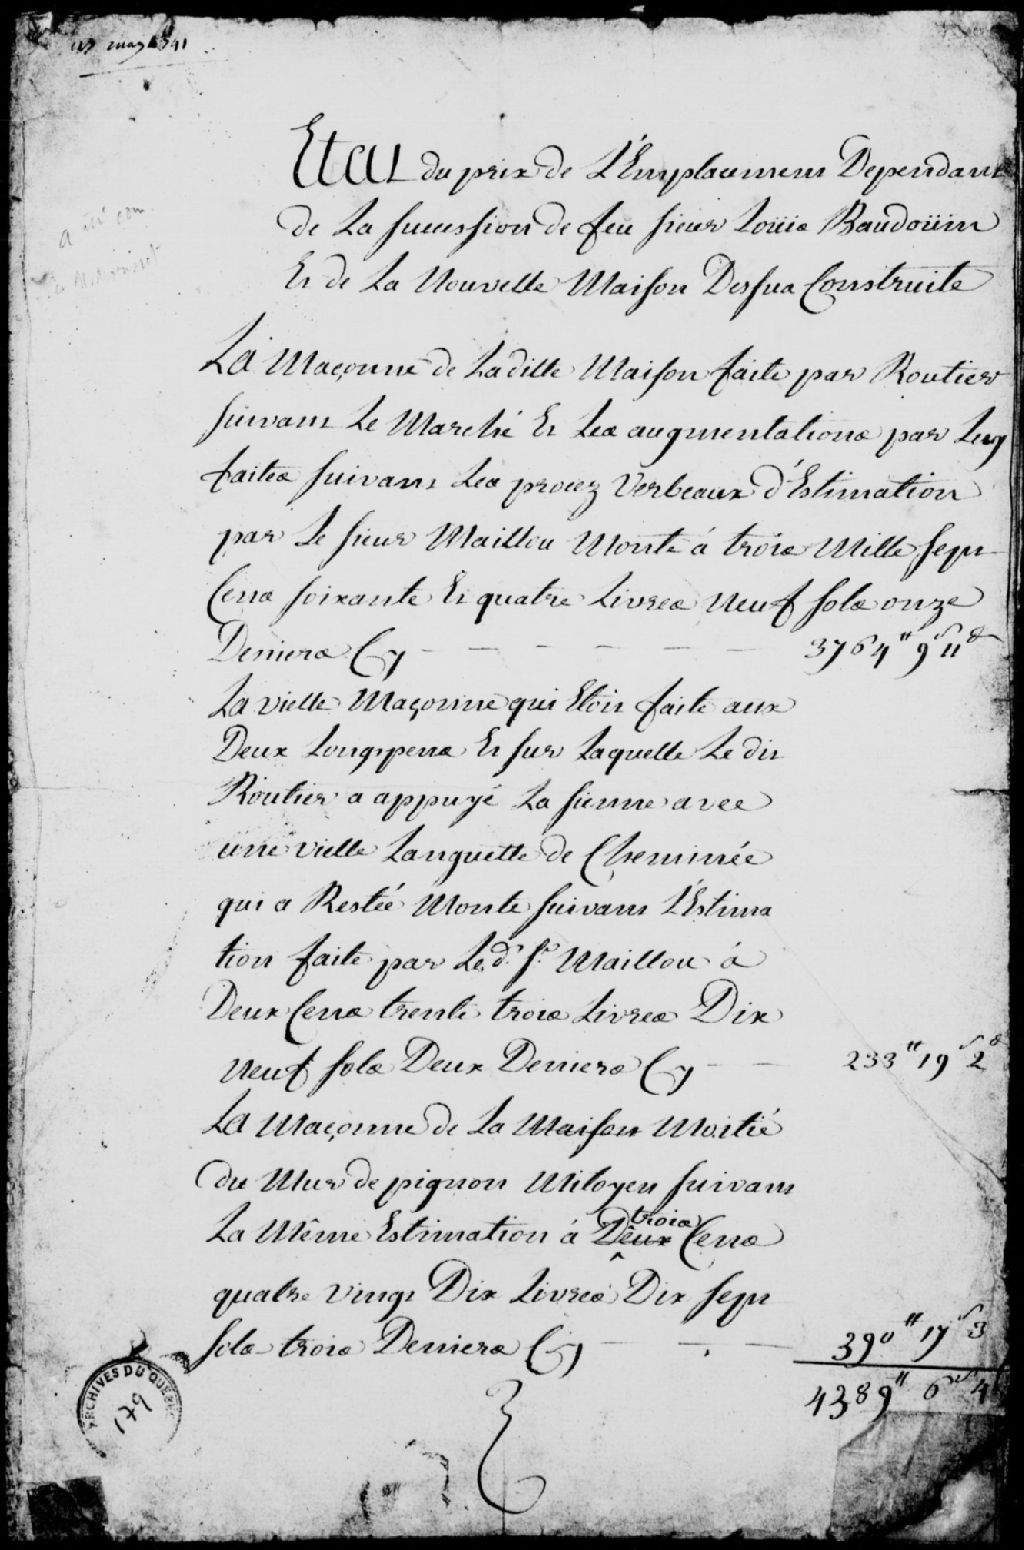 may 1741
Etat du prix de L'Emplacement Dependant
de La sucession de feu sieur Loüis Baudoüin
Et de La Nouvelle Maison Dessus Construite
La Maçonne de Laditte Maison faite par Routier
suivant Le Marché Et Les augmentations par Luy
faites suivant Les procez Verbeaux d'Estimation
par Le sieur Maillou Monte á trois Mille sept
Cens soixante Et quatre Livres Neuf sols onze
Deniers Cy - - - - - - 3764" 9s 11d
La vielle Maçonne qui Etoit faite aux
Deux Longspens Et sur Laquelle Le dit
Routier a appuyé La sienne avec
une vielle Languette de Cheminée
qui a Restée Monte suivant L'Estima
tion faite par Led. Sr. Maillou á
Deux Cens trente trois Livres Dix
neuf sols Deux Deniers Cy - - 233" 19s 2d
La Maçonne de La Maison Moitié
du Mur de pignon Mitoyen suivant
La Même Estimation á Deux trois Cens
quatre vingt Dix Livres Dix sept
sols trois Deniers Cy - - - 390" 17s 3
4389" 6s 4
ARCHIVES DU QUÉBEC
179